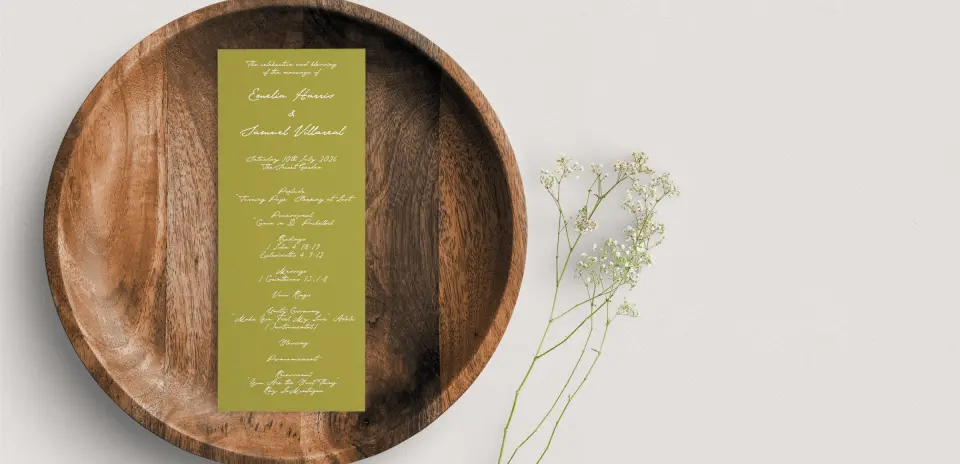 The celebration and blessing
of the marriage of
Emelia Harris
&
Samuel Villareal
Saturday 10th July 2026
The Secret Garden
Prelude
"Turning Page" Sleeping at Last
Processional
"Canon in D" Pachelbel
Readings
1 John 4: 18-19
Ecclesiastes 4: 9-12
Message
1 Corinthians 13: 1-8
Vows Rings
Unity Ceremony
"Make You Feel My Love" Adele
(Instrumental)
Blessing
Pronouncement
Recessional
"You Are the Best Thing"
Ray LaMontagne